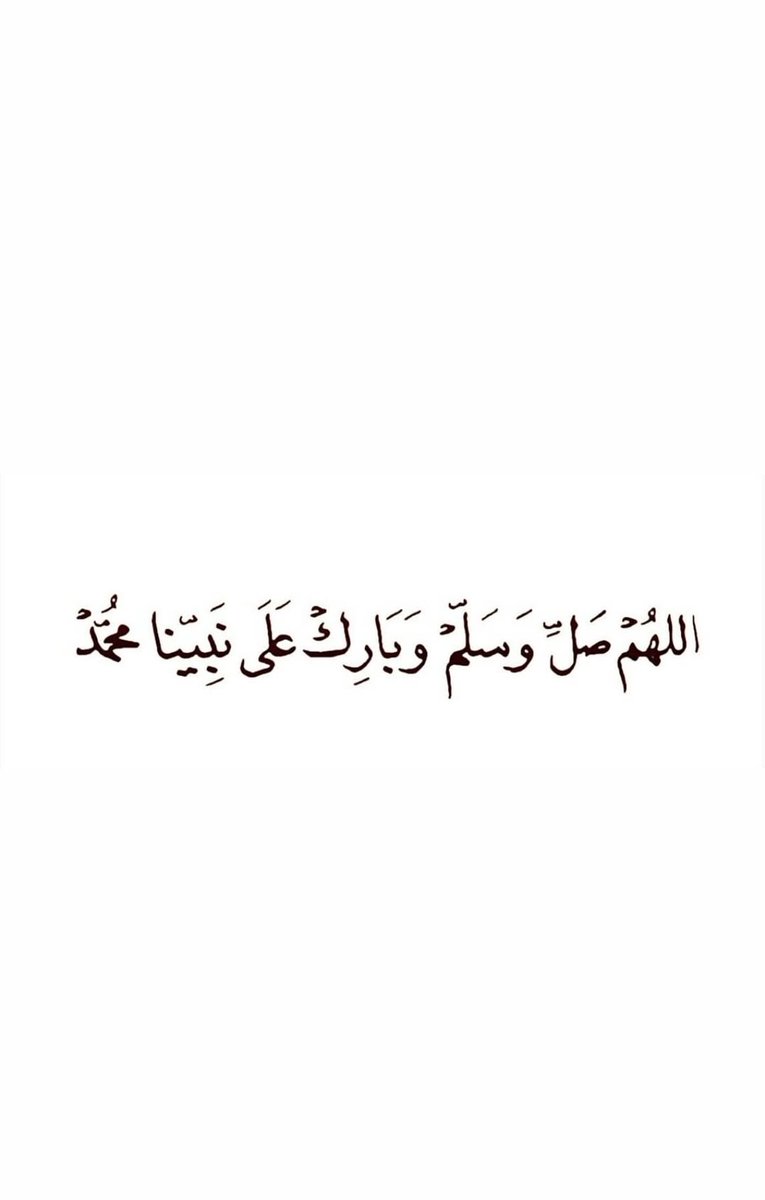 اللهُمْ صَلِّ وَسَلّمْ وَبَارِكْ عَلَى نَبِيّنَا محمُّدْ